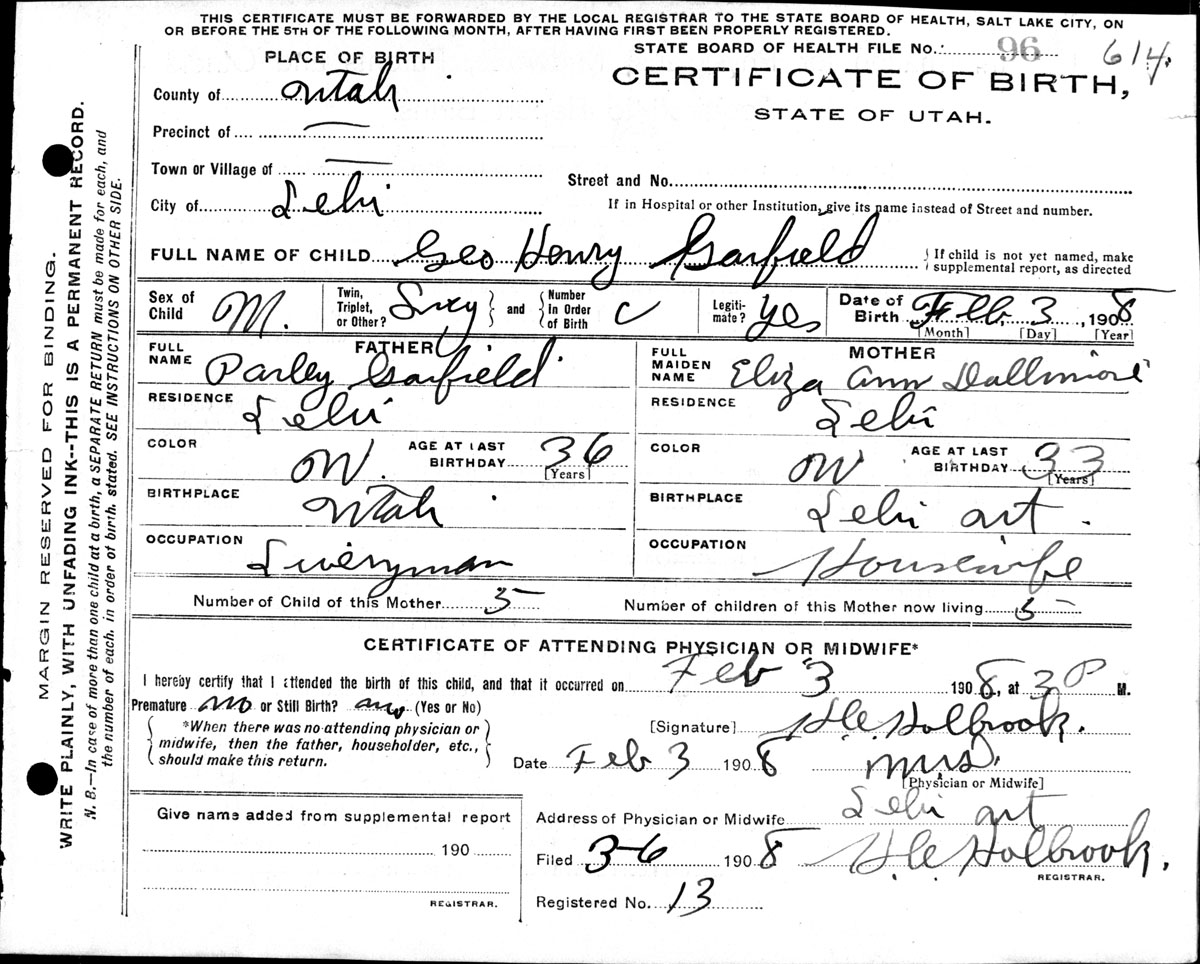 THIS CERTIFICATE MUST BE FORWARDED BY THE LOCAL REGISTRAR TO THE STATE BOARD OF HEALTH, SALT LAKE CITY, ON
OR BEFORE THE 5TH OF THE FOLLOWING MONTH, AFTER HAVING FIRST BEEN PROPERLY REGISTERED.
STATE BOARD OF HEALTH FILE No. 96 614.
PLACE OF BIRTH
CERTIFICATE OF BIRTH,
STATE OF UTAH.
County of Utah
Precinct of —
Town or Village of —
Street and No.
City of Lehi
If in Hospital or other Institution, give its name instead of Street and number.
FULL NAME OF CHILD Geo Henry Garfield
{ If child is not yet named, make supplemental report, as directed
Sex of Child M.
Twin, Triplet, or Other? } and { Number In Order of Birth
Legitimate? Yes
Date of Birth Feb. 3, 1908
[Month] [Day] [Year]
FATHER
FULL NAME Parley Garfield
MOTHER
FULL MAIDEN NAME Eliza Ann Dallimore
RESIDENCE Lehi
RESIDENCE Lehi
COLOR W. AGE AT LAST BIRTHDAY 36 [Years]
COLOR W AGE AT LAST BIRTHDAY 33 [Years]
BIRTHPLACE Utah
BIRTHPLACE Lehi
OCCUPATION Liveryman
OCCUPATION Housewife
Number of Child of this Mother 5
Number of children of this Mother now living 5
CERTIFICATE OF ATTENDING PHYSICIAN OR MIDWIFE*
I hereby certify that I attended the birth of this child, and that it occurred on Feb 3 1908, at 3 P M.
Premature no or Still Birth? no (Yes or No)
{ *When there was no attending physician or midwife, then the father, householder, etc., should make this return. }
[Signature] Holbrook.
Date Feb 3 1908
[Physician or Midwife]
Address of Physician or Midwife Lehi
Give name added from supplemental report
190
REGISTRAR.
Filed 3-6 1908 Holbrook.
REGISTRAR.
Registered No. 13
MARGIN RESERVED FOR BINDING.
WRITE PLAINLY, WITH UNFADING INK--THIS IS A PERMANENT RECORD.
N. B.—In case of more than one child at a birth, a SEPARATE RETURN must be made for each, and
the number of each, in order of birth, stated. SEE INSTRUCTIONS ON OTHER SIDE.